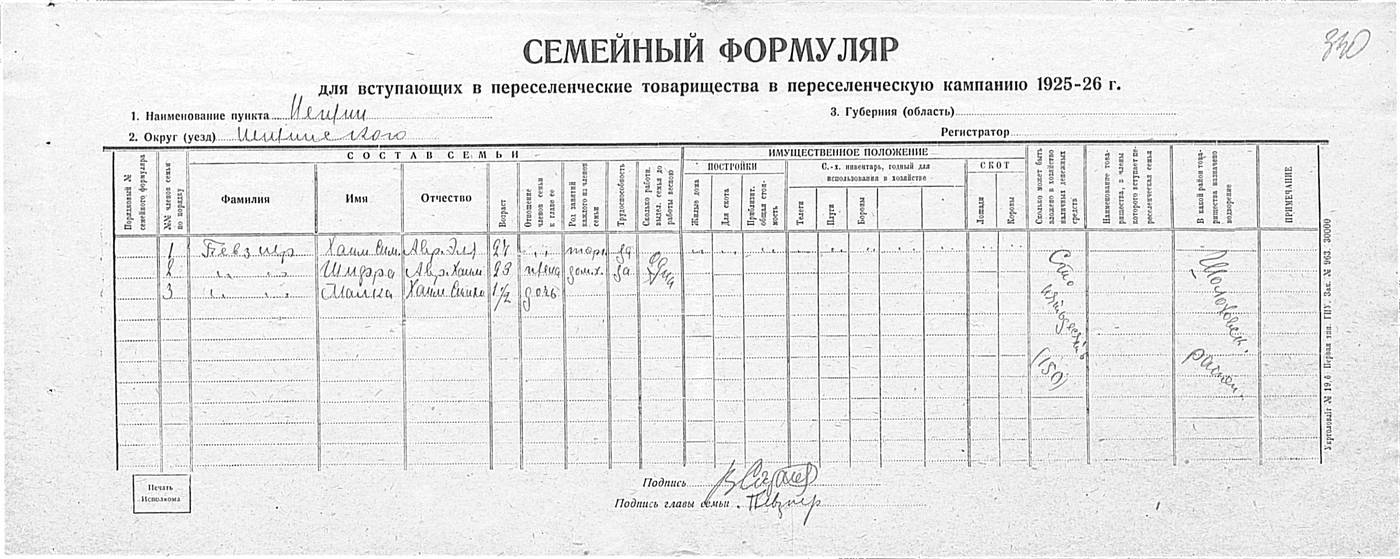 330
СЕМЕЙНЫЙ ФОРМУЛЯР
для вступающих в переселенческие товарищества в переселенческую кампанию 1925-26 г.
1. Наименование пункта
3. Губерния (область)
2. Округ (уезд)
Регистратор
Порядковый № семейного формуляра
№№ членов семьи по порядку
СОСТАВ СЕМЬИ
Фамилия
Имя
Отчество
Возраст
Отношение членов семьи к главе ее
Род занятий каждого из членов семьи
Трудоспособность
Сколько работн. выдел. семья до работы весною
ИМУЩЕСТВЕННОЕ ПОЛОЖЕНИЕ
ПОСТРОЙКИ
Жилые дома
Для скота
Приблизит. общая стоимость
С.-х. инвентарь, годный для использования в хозяйстве
Телеги
Плуги
Бороны
СКОТ
Лошади
Коровы
Сколько может быть вложено в хозяйство наличных денежных средств
Наименование товарищества, в члены которого вступает переселенческая семья
В какой район товарищества назначено водворение
ПРИМЕЧАНИЕ
1 Певзнер Хаим Сим. Авр. Эля 27 " торг. да
2 " " Шифра Авр. Хаим 23 жена дом.х. да
одна
3 " " Малка Хаим Симха 1½ дочь
Сто пятьдесят (150)
район.
Печать Исполкома
Подпись
Подпись главы семьи Певзнер
Укрголовліт № 19.6 Первая тип. ГПУ. Зак. № 963 30000